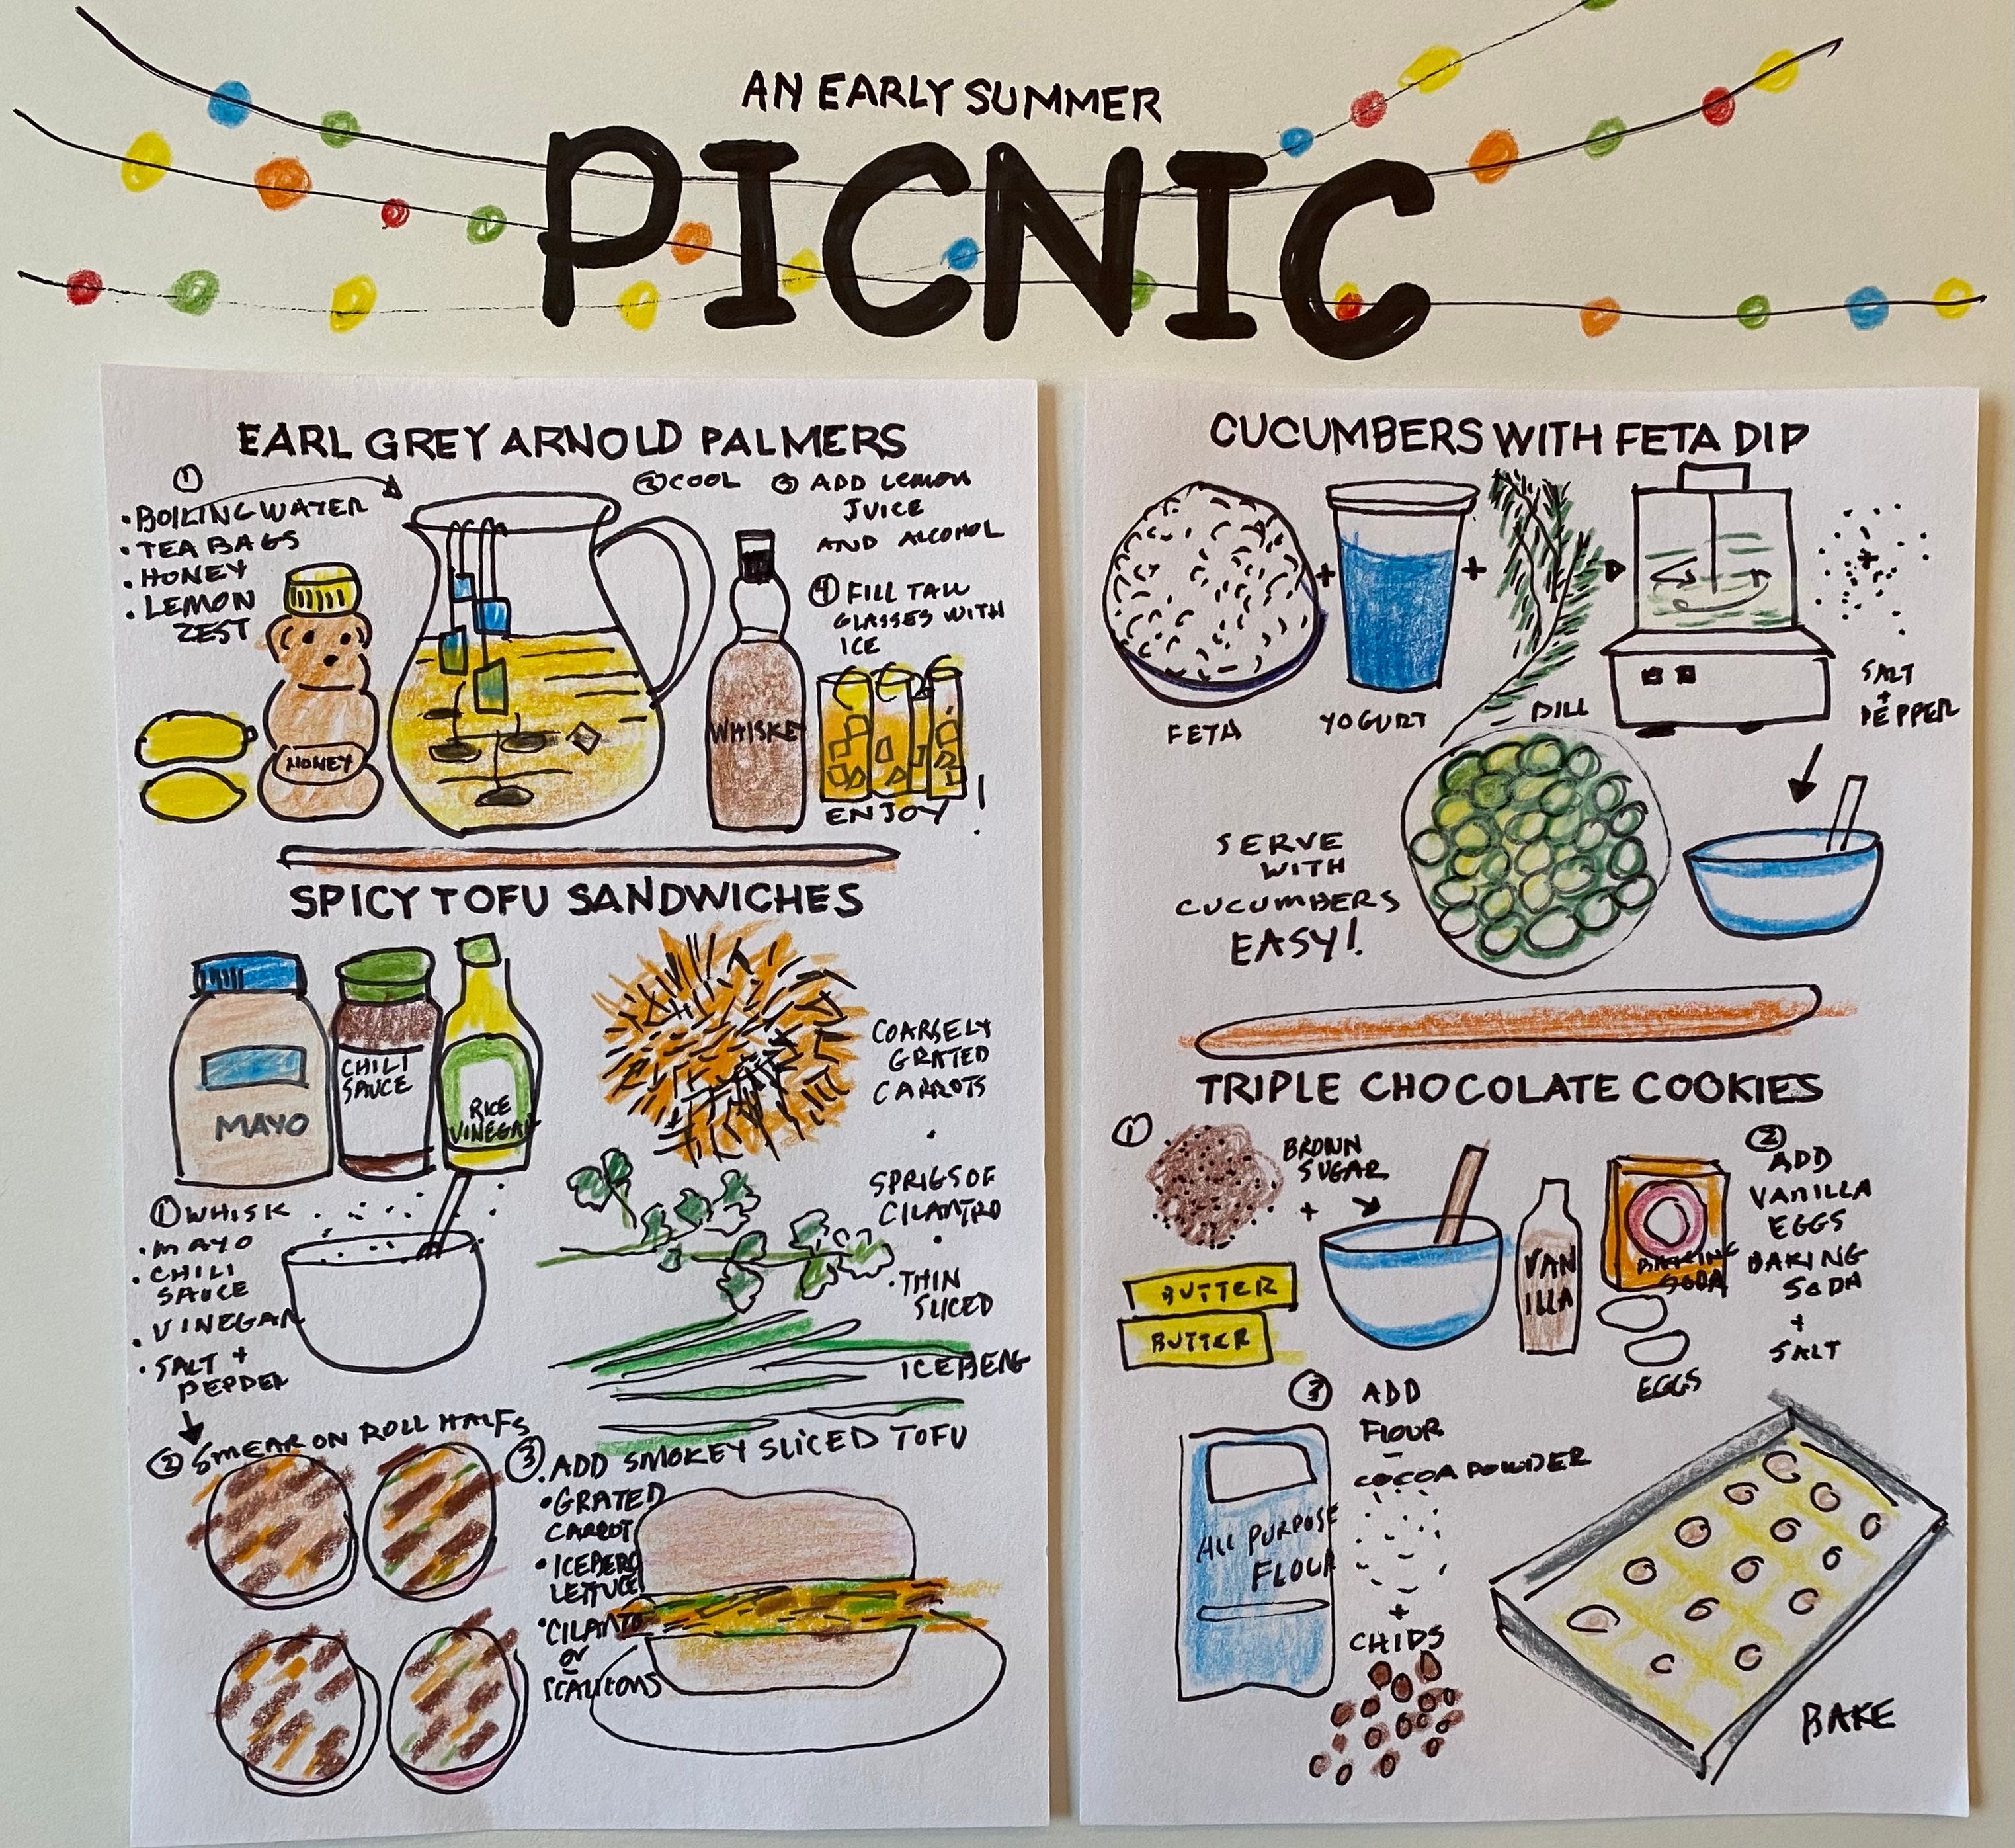 AN EARLY SUMMER
PICNIC
EARL GREY ARNOLD PALMERS
①
• BOILING WATER
• TEA BAGS
• HONEY
• LEMON
ZEST
② COOL
③ ADD LEMON
JUICE
AND ALCOHOL
④ FILL TALL
GLASSES WITH
ICE
HONEY
WHISKE
ENJOY!
SPICY TOFU SANDWICHES
MAYO
CHILI
SAUCE
RICE
VINEGAR
COARSELY
GRATED
CARROTS
•
SPRIGS OF
CILANTRO
•
• THIN
SLICED
ICEBERG
① WHISK
• MAYO
• CHILI
SAUCE
• VINEGAR
• SALT +
PEPPER
② SMEAR ON ROLL HALFS
③ • ADD SMOKEY SLICED TOFU
• GRATED
CARROT
• ICEBERG
LETTUCE
• CILANTO
or
SCALLIONS
CUCUMBERS WITH FETA DIP
+
+
+
FETA
YOGURT
DILL
SALT
+
PEPPER
SERVE
WITH
CUCUMBERS
EASY!
TRIPLE CHOCOLATE COOKIES
①
BROWN
SUGAR
+
BUTTER
BUTTER
VAN
ILLA
BAKING
SODA
EGGS
②
ADD
VANILLA
EGGS
BAKING
SODA
+
SALT
③ ADD
FLOUR
–
COCOA POWDER
+
CHIPS
ALL PURPOSE
FLOUR
BAKE